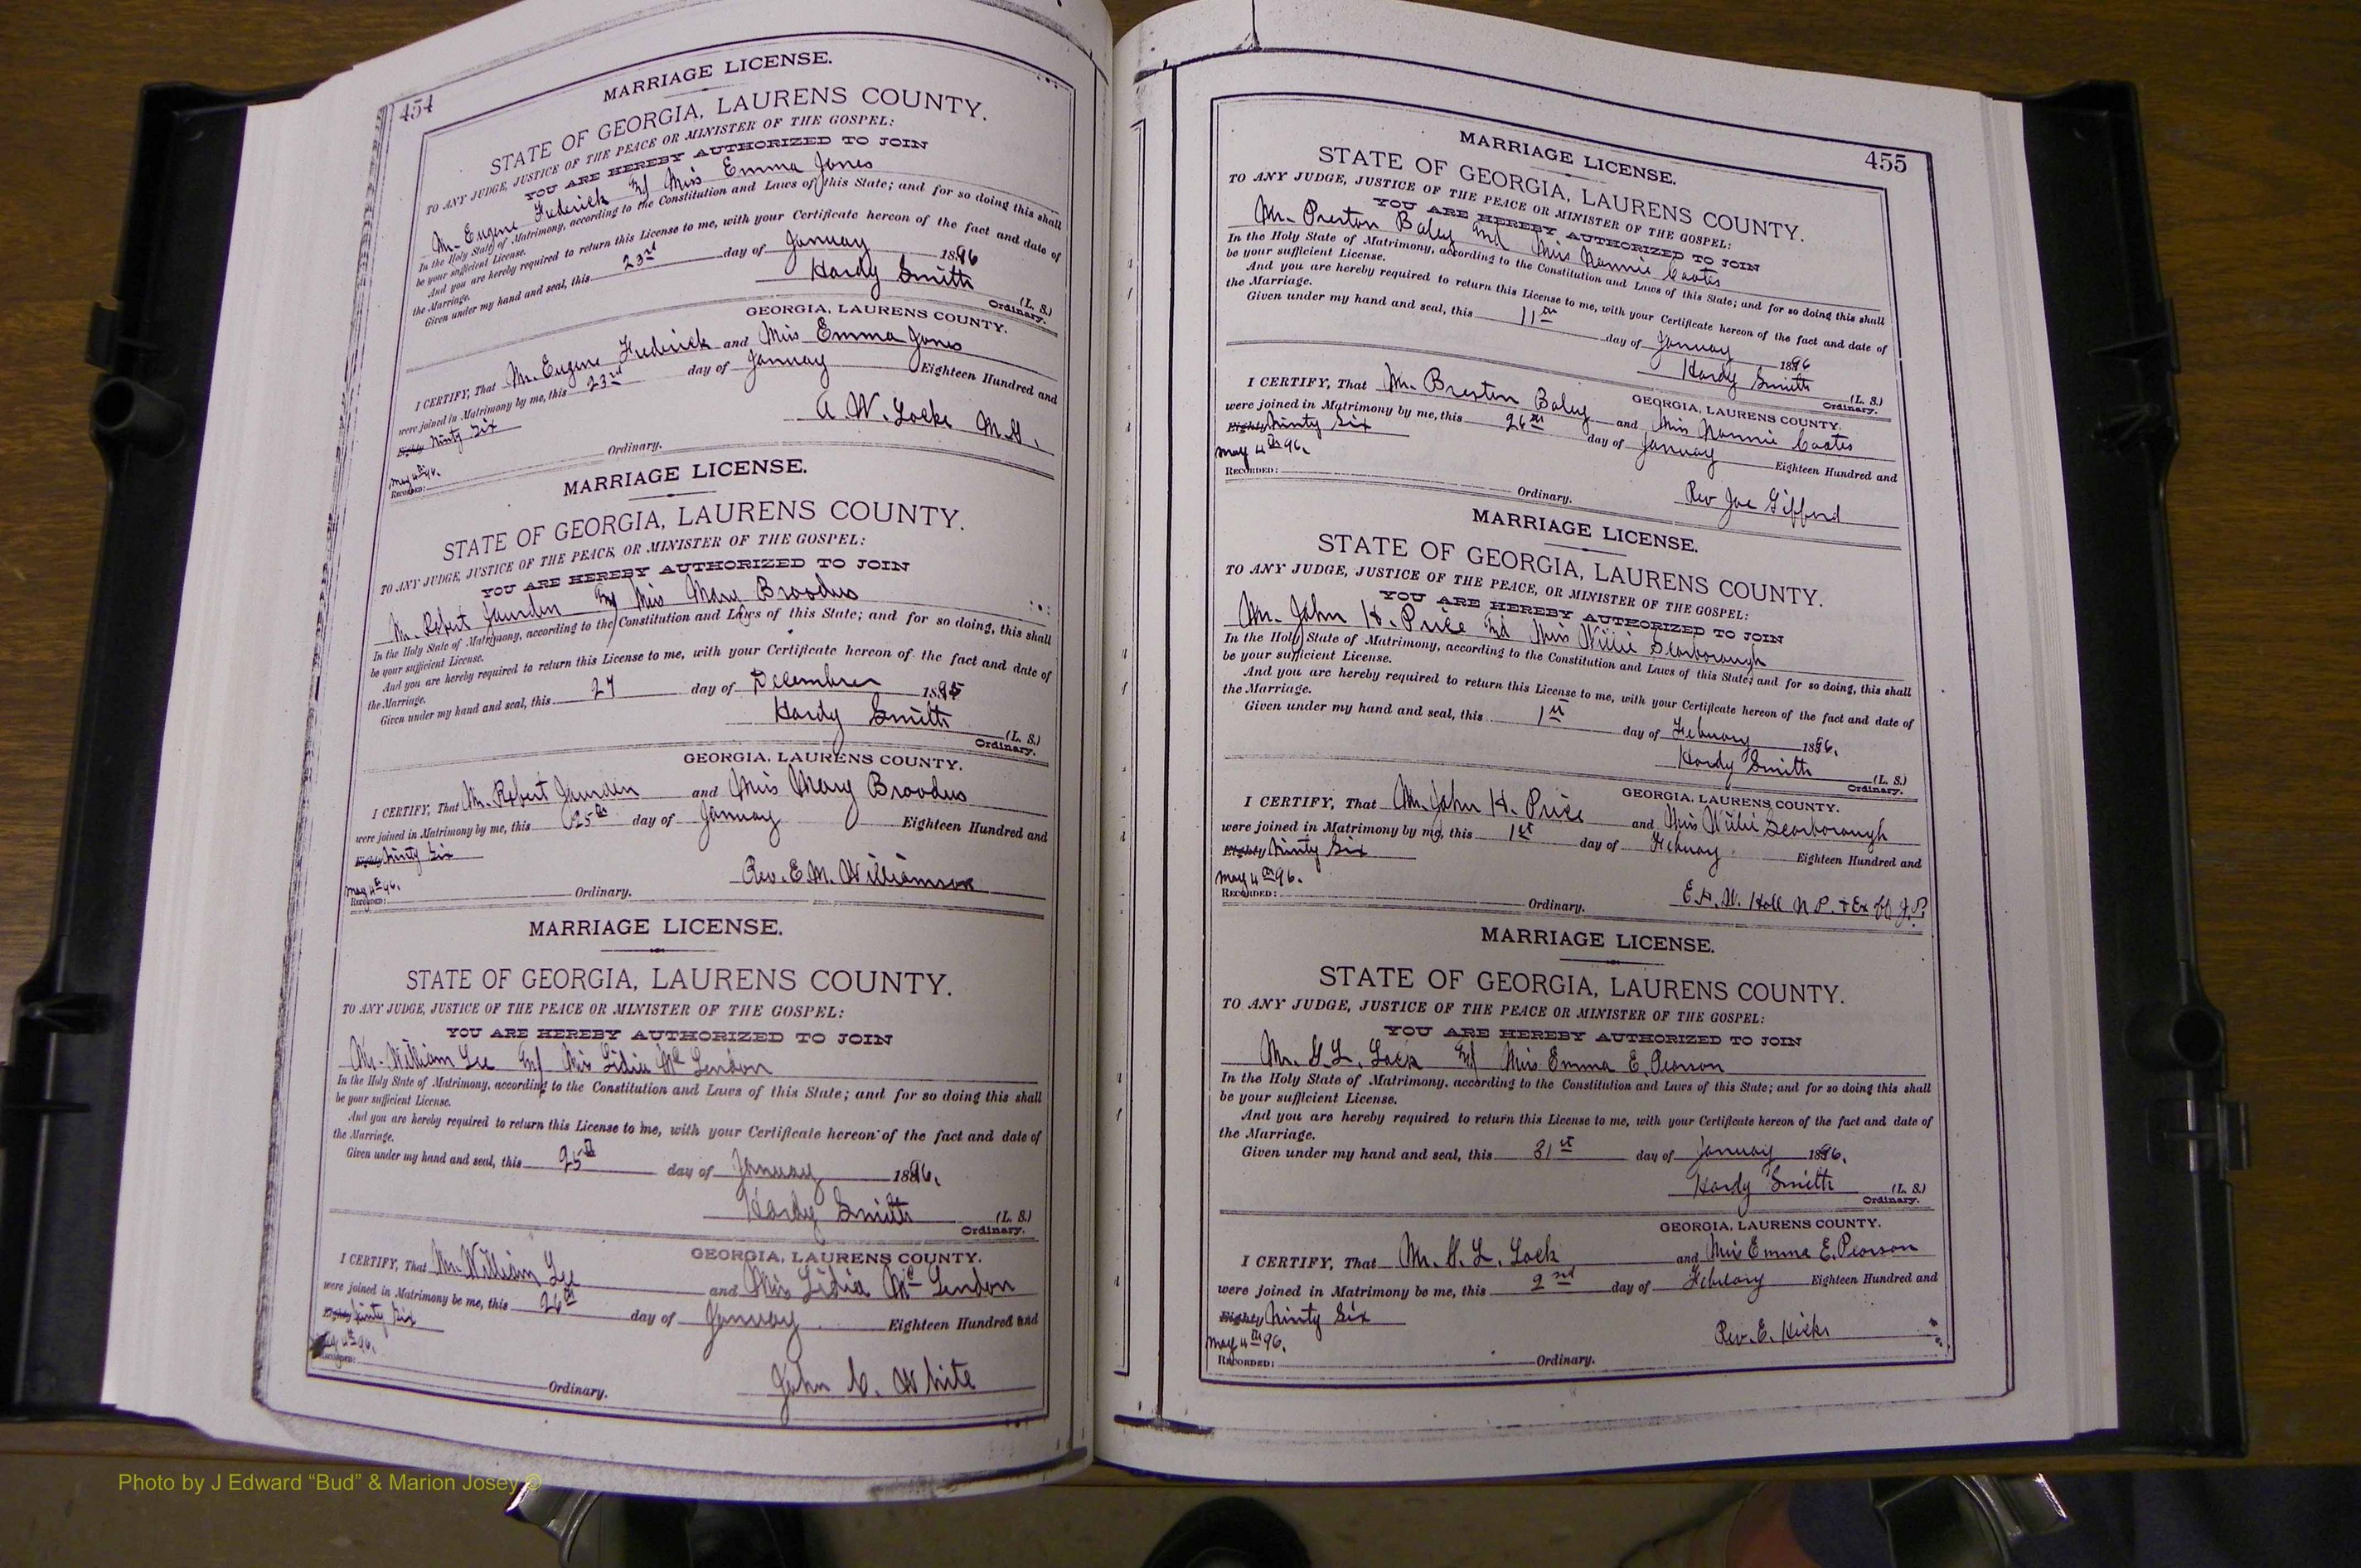 454
MARRIAGE LICENSE.
STATE OF GEORGIA, LAURENS COUNTY.
TO ANY JUDGE, JUSTICE OF THE PEACE OR MINISTER OF THE GOSPEL:
YOU ARE HEREBY AUTHORIZED TO JOIN
Mr. Eugene Frederick and Miss Emma Jones
In the Holy State of Matrimony, according to the Constitution and Laws of this State; and for so doing this shall
be your sufficient License.
And you are hereby required to return this License to me, with your Certificate hereon of the fact and date of
the Marriage.
Given under my hand and seal, this 23rd day of January 1896
Hardy Smith (L. S.)
Ordinary.
GEORGIA, LAURENS COUNTY.
I CERTIFY, That Mr. Eugene Frederick and Miss Emma Jones
were joined in Matrimony by me, this 23rd day of January Eighteen Hundred and
Eighty Ninty Six
A. W. Locke M.G.
May 4th 96.
RECORDED: Ordinary.
MARRIAGE LICENSE.
STATE OF GEORGIA, LAURENS COUNTY.
TO ANY JUDGE, JUSTICE OF THE PEACE, OR MINISTER OF THE GOSPEL:
YOU ARE HEREBY AUTHORIZED TO JOIN
Mr. Robert and Miss Mary Broodus
In the Holy State of Matrimony, according to the Constitution and Laws of this State; and for so doing, this shall
be your sufficient License.
And you are hereby required to return this License to me, with your Certificate hereon of the fact and date of
the Marriage.
Given under my hand and seal, this 27 day of December 1895
Hardy Smith (L. S.)
Ordinary.
GEORGIA, LAURENS COUNTY.
I CERTIFY, That Mr. Robert and Miss Mary Broodus
were joined in Matrimony by me, this 25th day of January Eighteen Hundred and
Eighty Ninty Six
Rev. E. M. Williamson
May 4th 96.
RECORDED: Ordinary.
MARRIAGE LICENSE.
STATE OF GEORGIA, LAURENS COUNTY.
TO ANY JUDGE, JUSTICE OF THE PEACE OR MINISTER OF THE GOSPEL:
YOU ARE HEREBY AUTHORIZED TO JOIN
Mr. William Lee and Miss Lidia McLendon
In the Holy State of Matrimony, according to the Constitution and Laws of this State; and for so doing this shall
be your sufficient License.
And you are hereby required to return this License to me, with your Certificate hereon of the fact and date of
the Marriage.
Given under my hand and seal, this 25th day of January 1896.
Hardy Smith (L. S.)
Ordinary.
GEORGIA, LAURENS COUNTY.
I CERTIFY, That Mr. William Lee and Miss Lidia McLendon
were joined in Matrimony be me, this 26th day of January Eighteen Hundred and
Eighty Ninty Six
May 4th 96.
RECORDED:
John C. White
Ordinary.
455
MARRIAGE LICENSE.
STATE OF GEORGIA, LAURENS COUNTY.
TO ANY JUDGE, JUSTICE OF THE PEACE OR MINISTER OF THE GOSPEL:
YOU ARE HEREBY AUTHORIZED TO JOIN
Mr. Preston Baley and Miss Nannie Coates
In the Holy State of Matrimony, according to the Constitution and Laws of this State; and for so doing this shall
be your sufficient License.
And you are hereby required to return this License to me, with your Certificate hereon of the fact and date of
the Marriage.
Given under my hand and seal, this 11th day of January 1896
Hardy Smith (L. S.)
Ordinary.
GEORGIA, LAURENS COUNTY.
I CERTIFY, That Mr. Preston Baley and Miss Nannie Coates
were joined in Matrimony by me, this 26th day of January Eighteen Hundred and
Eighty Ninty Six
May 4th 96.
Rev Joe Gifford
RECORDED: Ordinary.
MARRIAGE LICENSE.
STATE OF GEORGIA, LAURENS COUNTY.
TO ANY JUDGE, JUSTICE OF THE PEACE, OR MINISTER OF THE GOSPEL:
YOU ARE HEREBY AUTHORIZED TO JOIN
Mr. John H. Price and Miss Willie Scarborough
In the Holy State of Matrimony, according to the Constitution and Laws of this State; and for so doing, this shall
be your sufficient License.
And you are hereby required to return this License to me, with your Certificate hereon of the fact and date of
the Marriage.
Given under my hand and seal, this 1st day of Febuary 1896.
Hardy Smith (L. S.)
Ordinary.
GEORGIA, LAURENS COUNTY.
I CERTIFY, That Mr. John H. Price and Miss Willie Scarborough
were joined in Matrimony by me, this 1st day of Febuary Eighteen Hundred and
Eighty Ninty Six
May 4th 96.
E. H. W. Hall N P. & Ex off J.P.
RECORDED: Ordinary.
MARRIAGE LICENSE.
STATE OF GEORGIA, LAURENS COUNTY.
TO ANY JUDGE, JUSTICE OF THE PEACE OR MINISTER OF THE GOSPEL:
YOU ARE HEREBY AUTHORIZED TO JOIN
Mr. G. L. Lock and Miss Emma E. Pearson
In the Holy State of Matrimony, according to the Constitution and Laws of this State; and for so doing this shall
be your sufficient License.
And you are hereby required to return this License to me, with your Certificate hereon of the fact and date of
the Marriage.
Given under my hand and seal, this 31st day of January 1896.
Hardy Smith (L. S.)
Ordinary.
GEORGIA, LAURENS COUNTY.
I CERTIFY, That Mr. G. L. Lock and Miss Emma E. Pearson
were joined in Matrimony be me, this 2nd day of Febuary Eighteen Hundred and
Eighty Ninty Six
Rev. E. Hicks
May 4th 96.
RECORDED: Ordinary.
Photo by J Edward “Bud” & Marion Josey ©